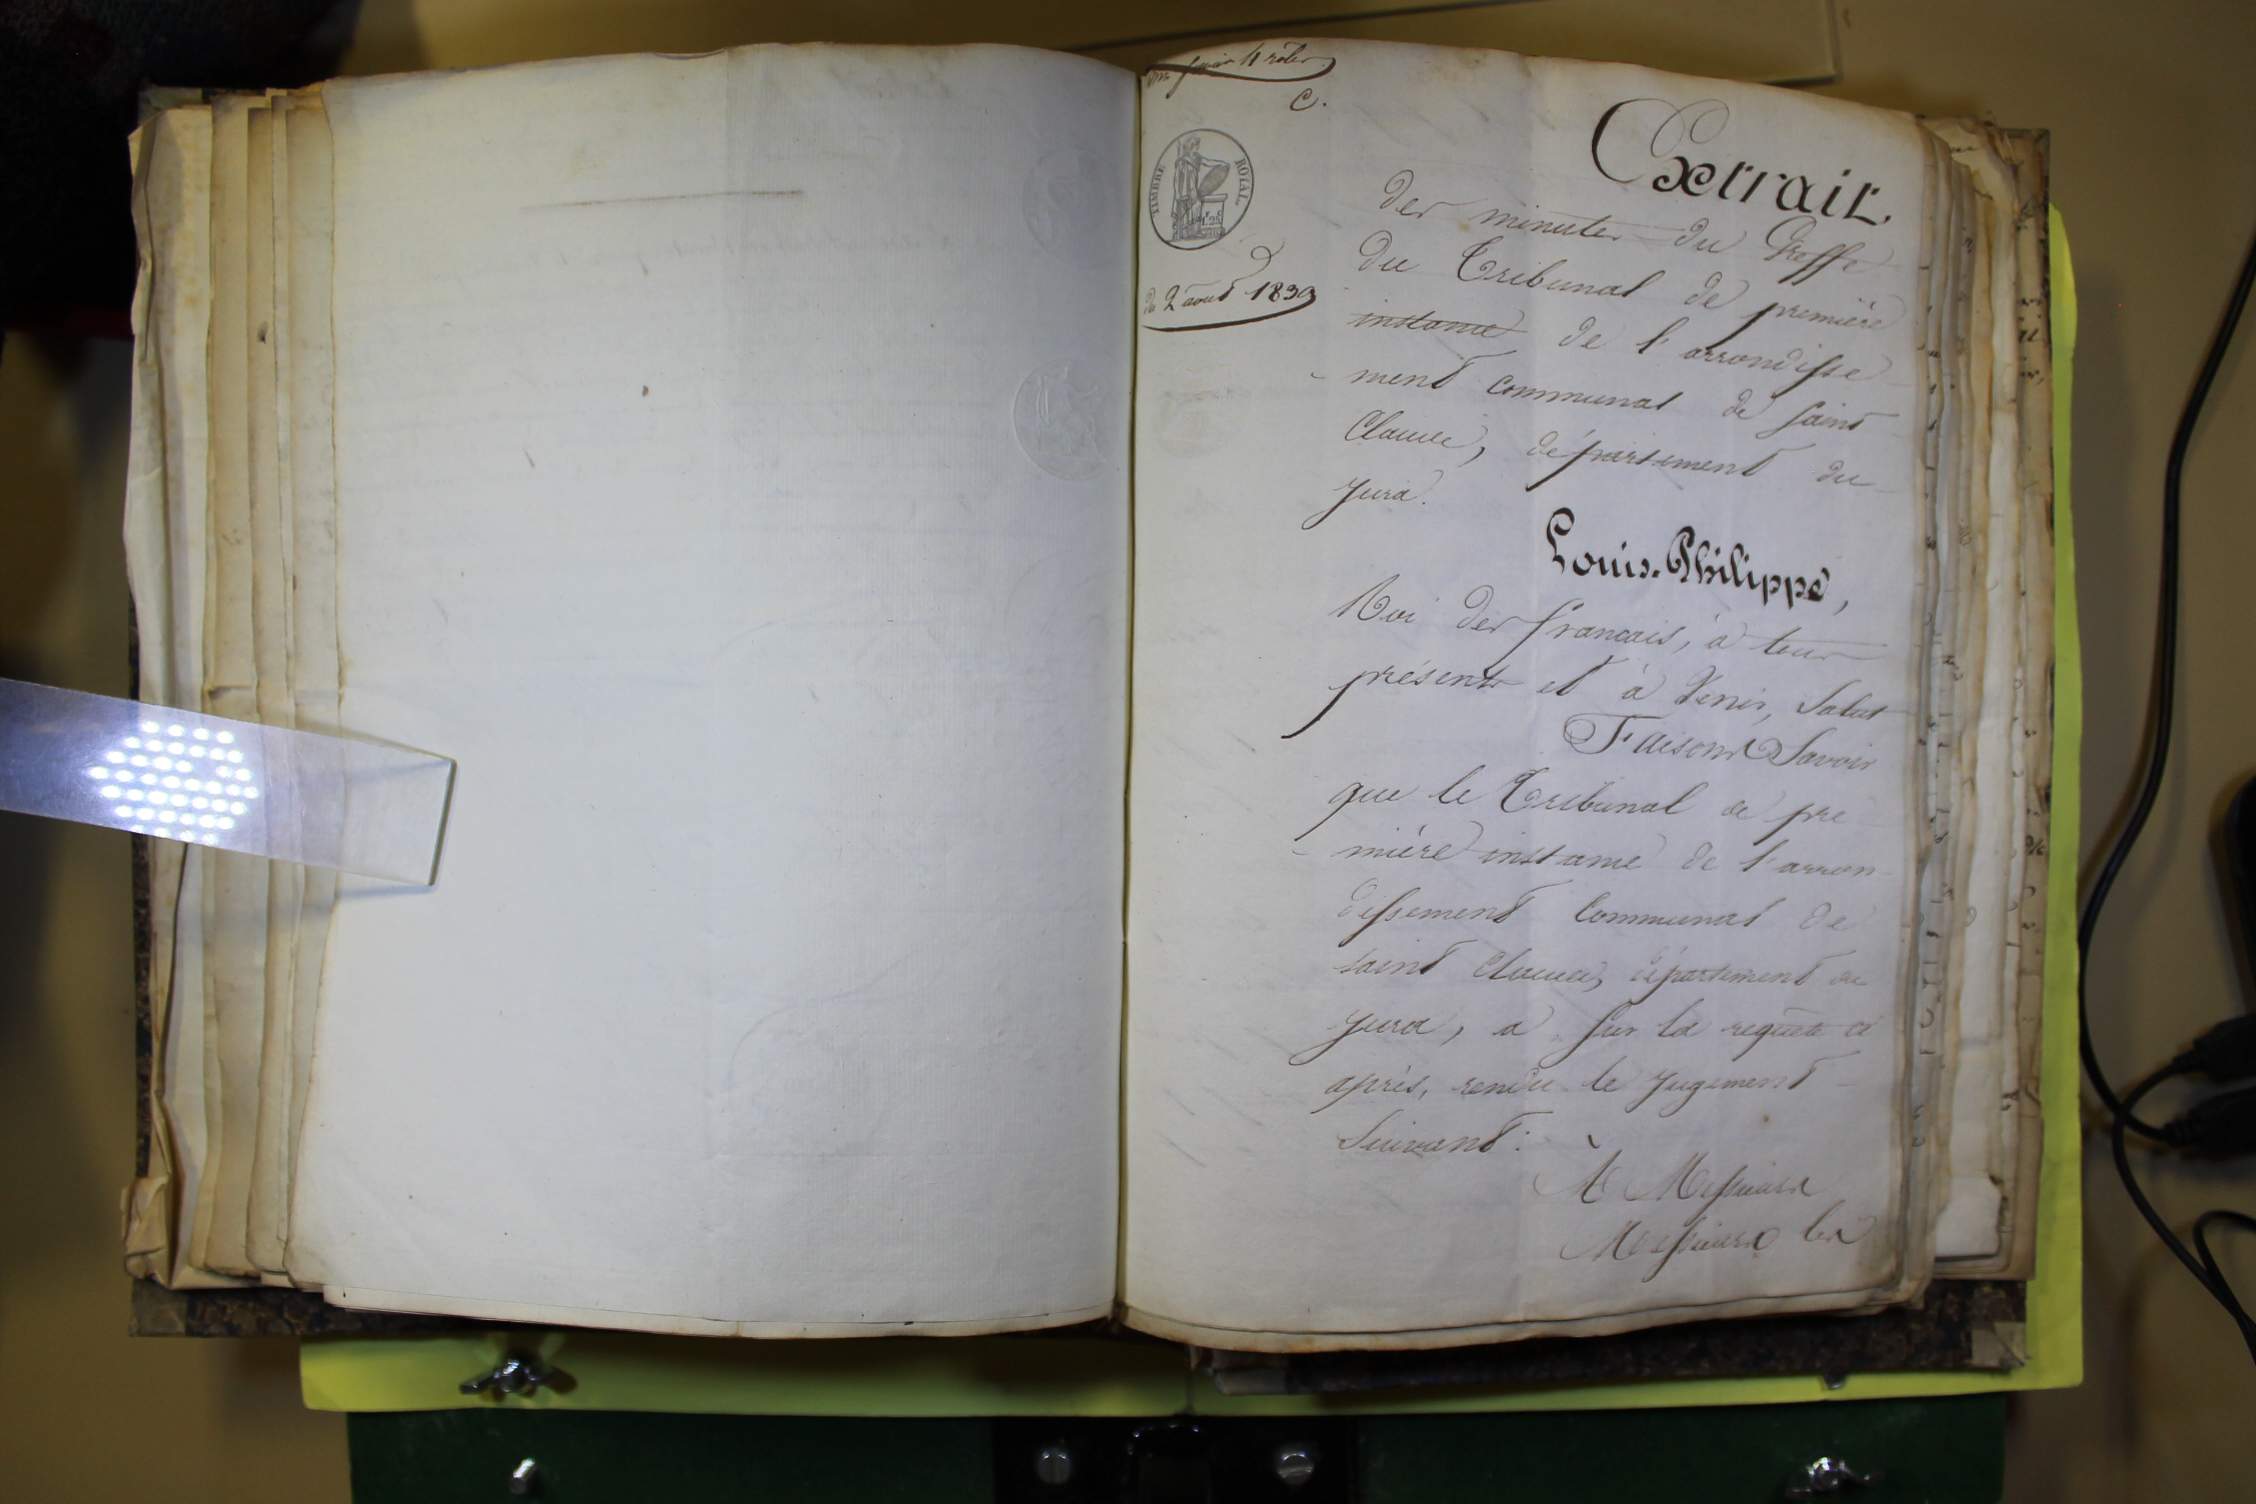 4 rôles
C.
TIMBRE ROYAL
du 2 août 1839
Extrait
des minutes du Greffe
du Tribunal de première
instance de l'arrondisse
- ment communal de Saint
Claude, département du
Jura.
Louis-Philippe,
Roi des français, à tous
présents et à Venir, Salut
Faisons Savoir
que le Tribunal de pre
- mière instance de l'arron
dissement Communal de
saint Claude, département du
Jura, a sur la requête ci
après, rendu le Jugement
Suivant :
À Messieurs
Messieurs les